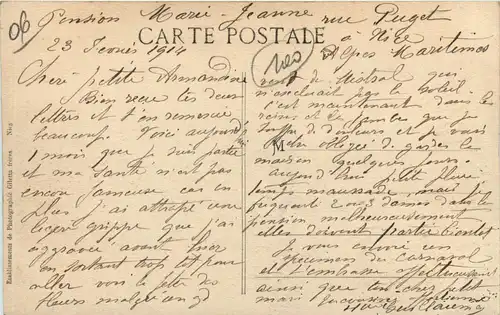 06
Pension Marie-Jeanne rue Puget
CARTE POSTALE
23 Février 1914
à Nice
Alpes Maritimes
Chère petite Armandine
Bien reçu tes deux
lettres et t'en remercie
beaucoup. Voici aujourd'hui
1 mois que je suis partie
et ma santé n'est pas
encore fameuse car en
plus j'ai attrapé une
légère grippe que j'ai
aggravée avant hier
en sortant trop tôt pour
aller voir la fête des
fleurs malgré un gd
vent de Mistral qui
n'excluait pas le soleil.
c'est maintenant dans les
reins et la que je
souffre de douleurs et je vais
être obligée de garder la
maison quelques jours.
aujourd'hui petite pluie
temps maussade, mais je
2 ou 3 dames dans la
pension malheureusement
elles doivent partir bientôt
Je vous envoie un
specimen du Carnaval
et t'embrasse affectueusement
ainsi que ton cher petit
mari
Etablissements de Photographie Giletta frères Nice